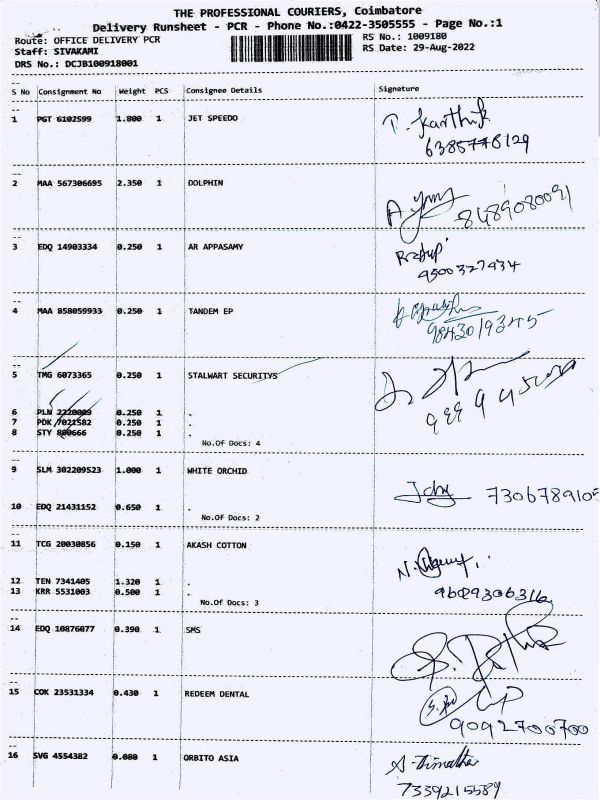 THE PROFESSIONAL COURIERS, Coimbatore
Delivery Runsheet - PCR - Phone No.:0422-3505555 - Page No.:1
Route: OFFICE DELIVERY PCR
RS No.: 1009180
Staff: SIVAKAMI
RS Date: 29-Aug-2022
DRS No.: DCJB100918001
S No Consignment No Weight PCS Consignee Details Signature
1 PGT 6102599 1.800 1 JET SPEEDO T. Karthik
6385778129
2 MAA 567306695 2.350 1 DOLPHIN
8489080091
3 EDQ 14903334 0.250 1 AR APPASAMY
9500327934
4 MAA 858059933 0.250 1 TANDEM EP
9843019345
5 TMG 6073365 0.250 1 STALWART SECURITYS
6 PLN 2220009 0.250 1 .
7 PDK 7021582 0.250 1 .
8 STY 800666 0.250 1 .
No.Of Docs: 4
9 SLM 302209523 1.000 1 WHITE ORCHID
7306789105
10 EDQ 21431152 0.650 1 .
No.Of Docs: 2
11 TCG 20030856 0.150 1 AKASH COTTON
12 TEN 7341405 1.320 1 .
13 KRR 5531003 0.500 1 .
9609306316
No.Of Docs: 3
14 EDQ 10876077 0.390 1 SMS
15 COK 23531334 0.430 1 REDEEM DENTAL
9092700700
16 SVG 4554382 0.080 1 ORBITO ASIA
7339215589